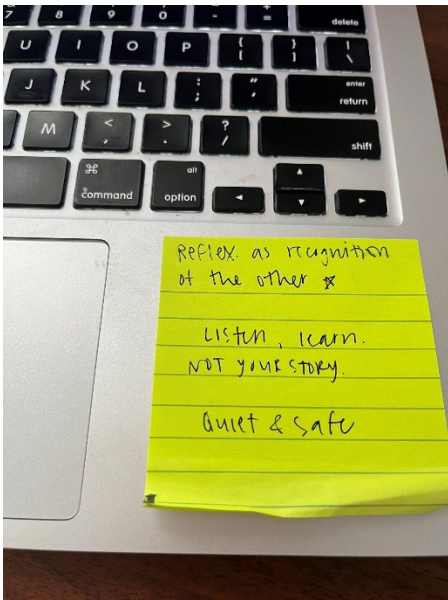 7 8 9 0 - + = delete
U I O P { [ } ] | \
J K L : ; " ' enter return
M < , > . ? / shift
⌘ command alt option ◄ ▲ ▼ ►
Reflex. as recognition
of the other ☆
Listen, learn.
NOT YOUR STORY.
Quiet & safe